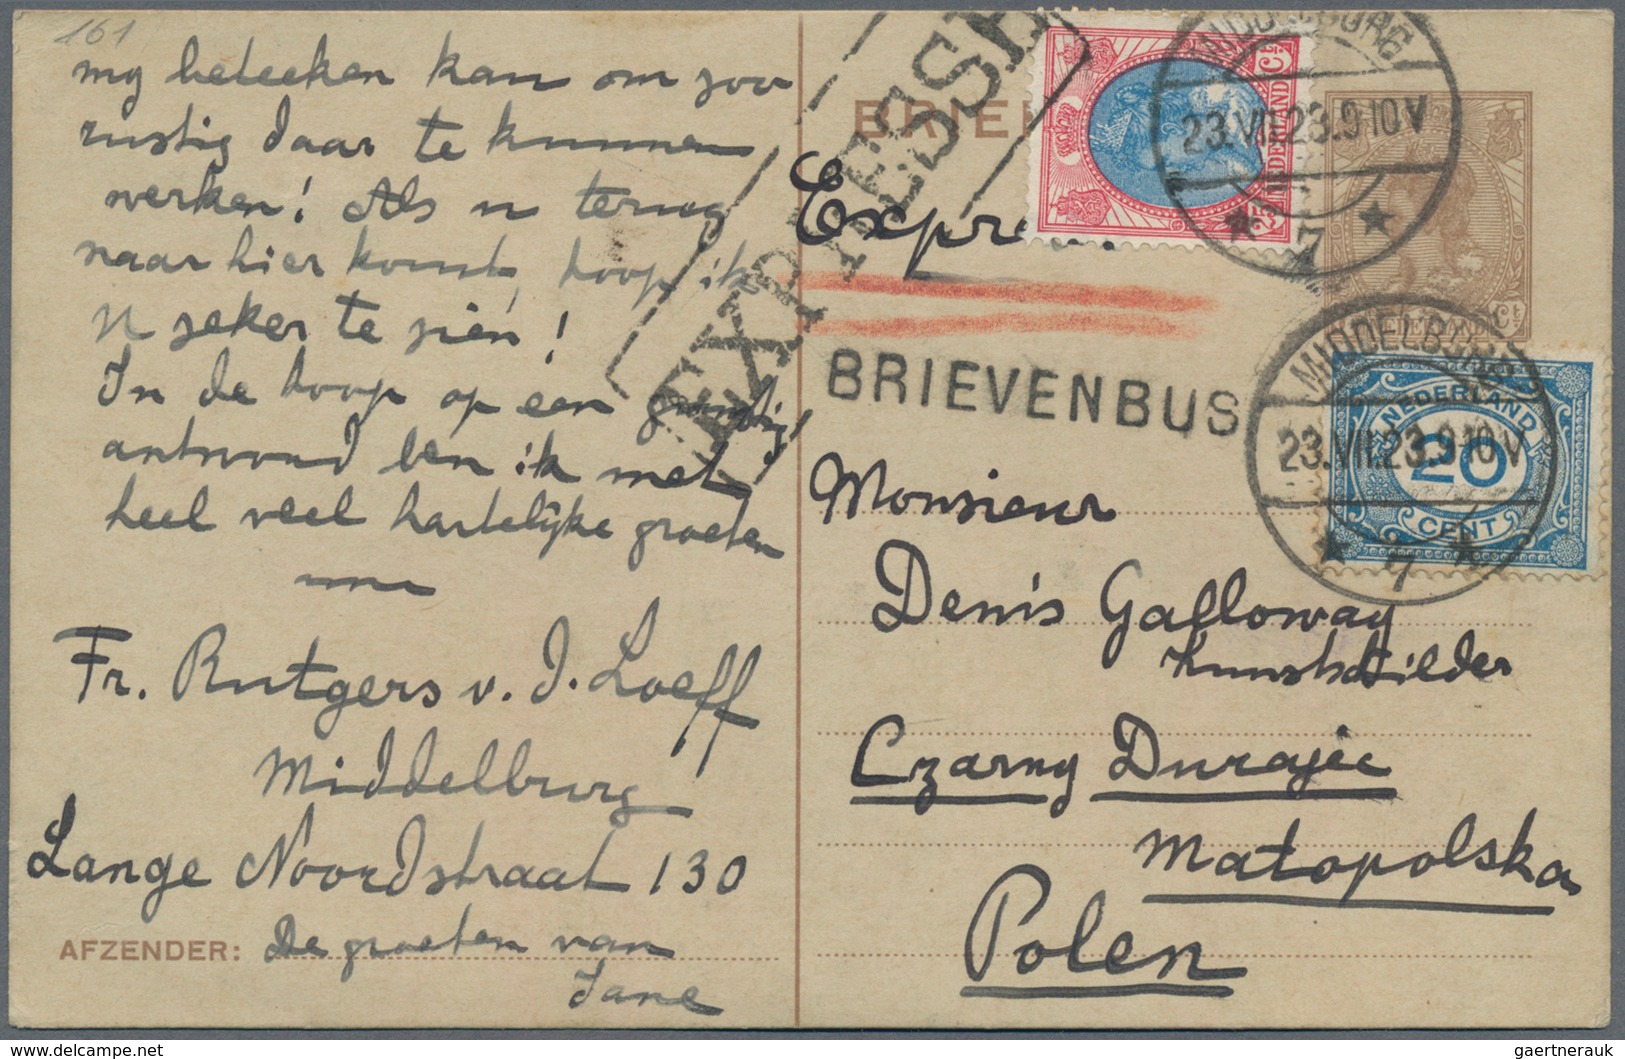 161
my beteeken kan om zoo
rustig daar te kunnen
werken! Als u terug
naar hier komt, hoop ik
u zeker te zien!
In de hoop op een gunstig
antwoord ben ik met
heel veel hartelijke groeten
Fr. Rutgers v. d. Loeff
Middelburg
Lange Noordstraat 130
AFZENDER: De groeten van
Jane
EXPRESSE
Expres
BRIEVENBUS
NEDERLAND
MIDDELBURG
23.VII.23.9-10V
7
NEDERLAND
MIDDELBURG
23.VII.23.9-10V
7
NEDERLAND
20
CENT
Monsieur
Denis Galloway
kunstschilder
Czarny Dunajec
Małopolska
Polen
delcampe.net
gaertnerauk